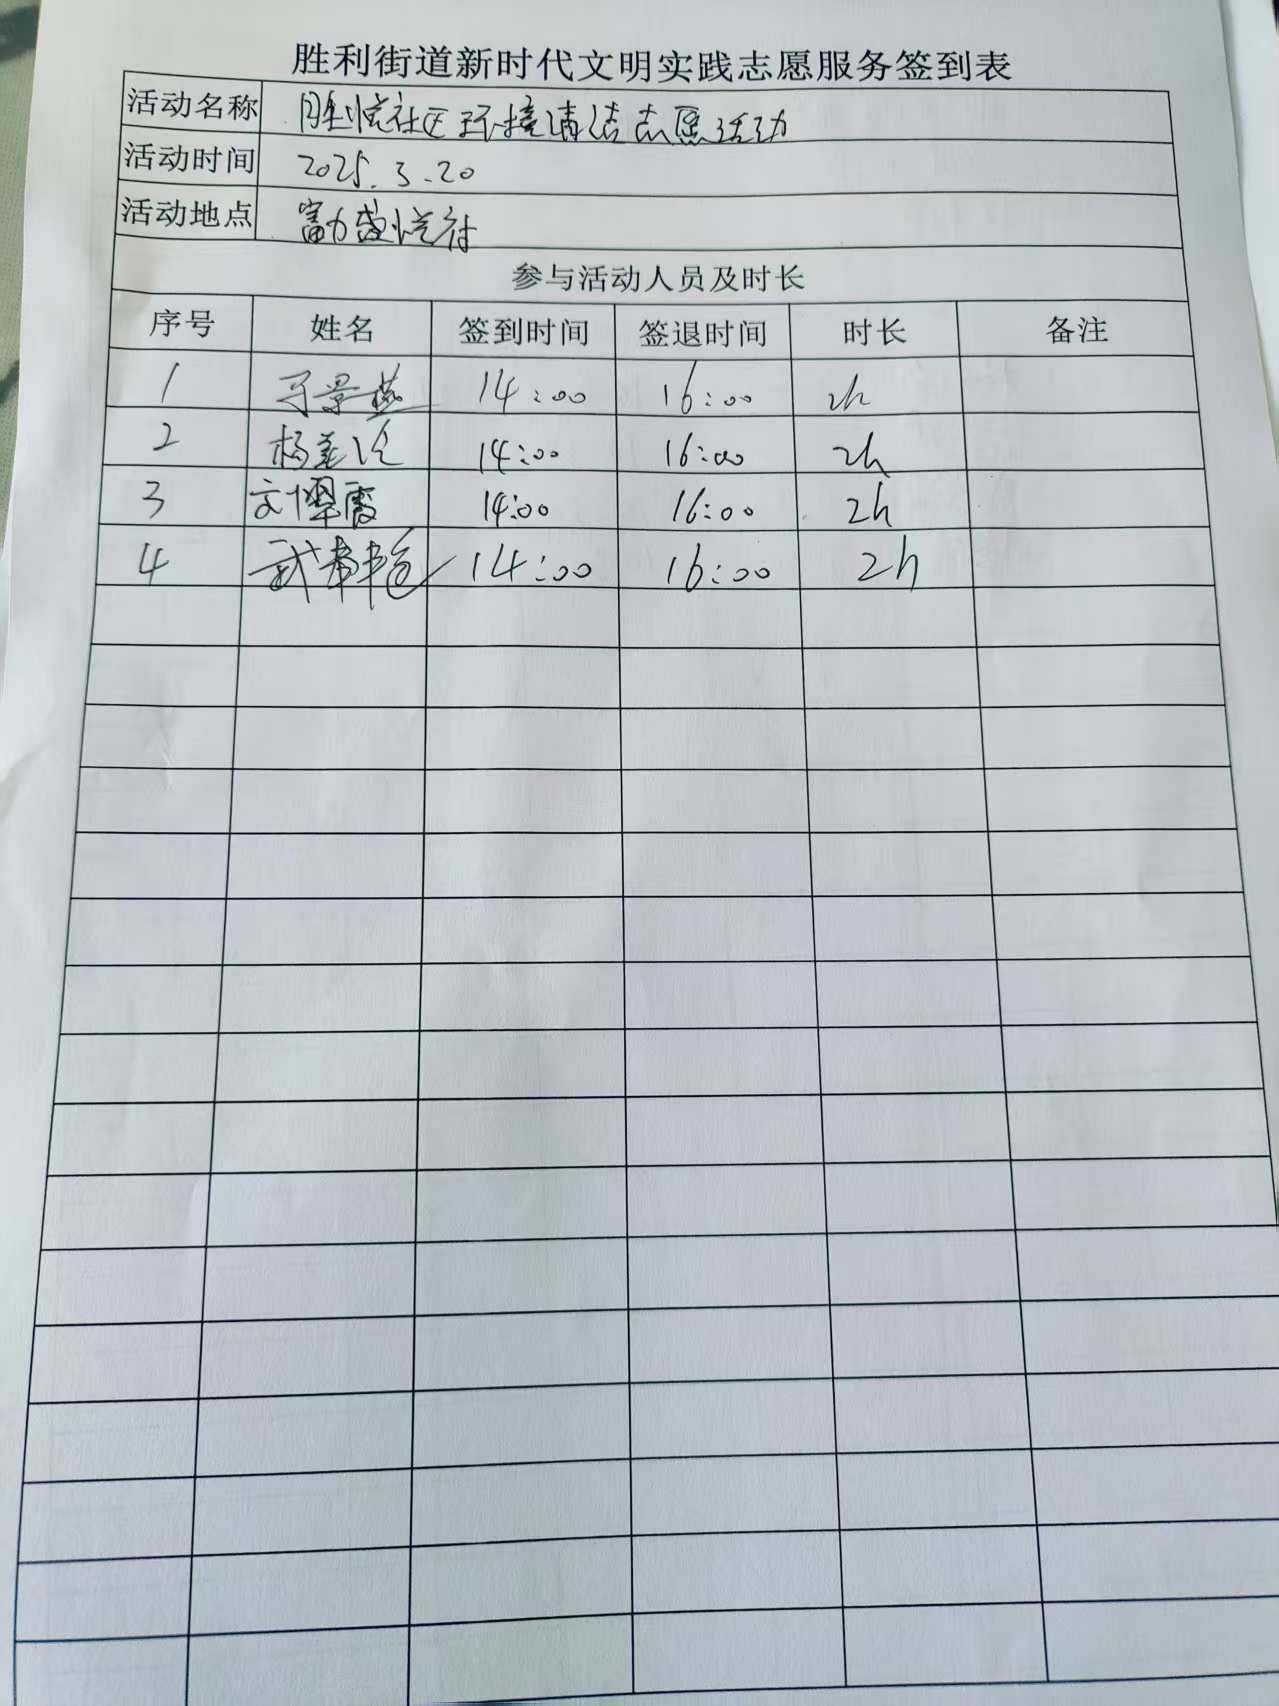 胜利街道新时代文明实践志愿服务签到表
活动名称 胜悦社区环境清洁志愿活动
活动时间 2025.3.20
活动地点 富力盛悦府
参与活动人员及时长
序号 姓名 签到时间 签退时间 时长 备注
1 14:00 16:00 2h
2 杨 14:00 16:00 2h
3 文 霞 14:00 16:00 2h
4 武 14:00 16:00 2h